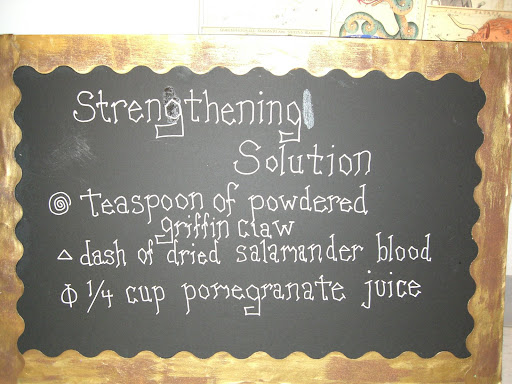 Strengthening
Solution
teaspoon of powdered
griffin claw
dash of dried salamander blood
1/4 cup pomegranate juice